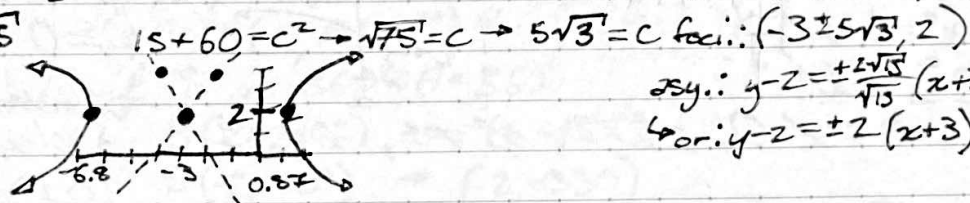 √5
15+60=c² → √75=c → 5√3=c foci: (-3±5√3, 2)
asy.: y-2=±2√15/√15 (x+
2
↳or: y-2=±2(x+3)
-6.8 -3 0.87